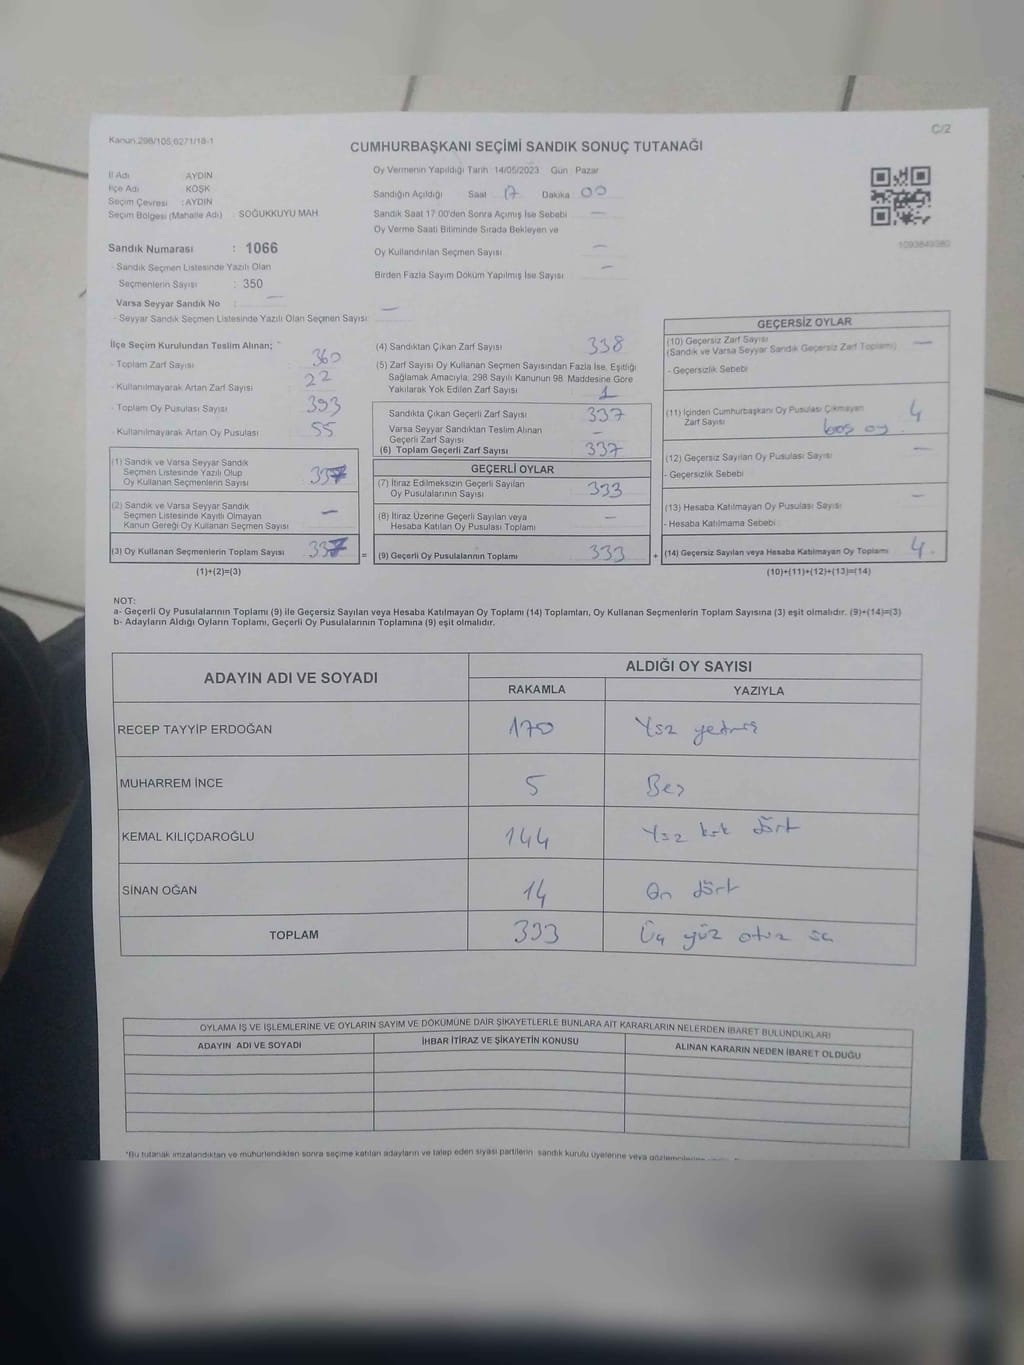 Kanun.298/105,6271/18-1
C/2
CUMHURBAŞKANI SEÇİMİ SANDIK SONUÇ TUTANAĞI
İl Adı AYDIN
İlçe Adı KÖŞK
Seçim Çevresi : AYDIN
Seçim Bölgesi (Mahalle Adı) : SOĞUKKUYU MAH.
Sandık Numarası : 1066
- Sandık Seçmen Listesinde Yazılı Olan
Seçmenlerin Sayısı : 350
Varsa Seyyar Sandık No : —
- Seyyar Sandık Seçmen Listesinde Yazılı Olan Seçmen Sayısı: —
Oy Vermenin Yapıldığı Tarih 14/05/2023 Gün : Pazar
Sandığın Açıldığı Saat 17 Dakika 00
Sandık Saat 17.00'den Sonra Açılmış İse Sebebi —
Oy Verme Saati Bitiminde Sırada Bekleyen ve
Oy Kullandırılan Seçmen Sayısı —
Birden Fazla Sayım Döküm Yapılmış İse Sayısı —
1093849380
İlçe Seçim Kurulundan Teslim Alınan;
- Toplam Zarf Sayısı : 360
- Kullanılmayarak Artan Zarf Sayısı : 22
- Toplam Oy Pusulası Sayısı : 393
- Kullanılmayarak Artan Oy Pusulası : 55
(1) Sandık ve Varsa Seyyar Sandık
Seçmen Listesinde Yazılı Olup
Oy Kullanan Seçmenlerin Sayısı 337
(2) Sandık ve Varsa Seyyar Sandık
Seçmen Listesinde Kayıtlı Olmayan
Kanun Gereği Oy Kullanan Seçmen Sayısı —
(3) Oy Kullanan Seçmenlerin Toplam Sayısı 337 =
(1)+(2)=(3)
(4) Sandıktan Çıkan Zarf Sayısı 338
(5) Zarf Sayısı Oy Kullanan Seçmen Sayısından Fazla İse, Eşitliği
Sağlamak Amacıyla; 298 Sayılı Kanunun 98. Maddesine Göre
Yakılarak Yok Edilen Zarf Sayısı 1
Sandıkta Çıkan Geçerli Zarf Sayısı 337
Varsa Seyyar Sandıktan Teslim Alınan
Geçerli Zarf Sayısı —
(6) Toplam Geçerli Zarf Sayısı 337
GEÇERLİ OYLAR
(7) İtiraz Edilmeksizin Geçerli Sayılan
Oy Pusulalarının Sayısı 333
(8) İtiraz Üzerine Geçerli Sayılan veya
Hesaba Katılan Oy Pusulası Toplamı —
(9) Geçerli Oy Pusulalarının Toplamı 333 +
GEÇERSİZ OYLAR
(10) Geçersiz Zarf Sayısı —
(Sandık ve Varsa Seyyar Sandık Geçersiz Zarf Toplamı)
- Geçersizlik Sebebi
(11) İçinden Cumhurbaşkanı Oy Pusulası Çıkmayan 4
Zarf Sayısı boş oy
(12) Geçersiz Sayılan Oy Pusulası Sayısı —
- Geçersizlik Sebebi
(13) Hesaba Katılmayan Oy Pusulası Sayısı —
- Hesaba Katılmama Sebebi
(14) Geçersiz Sayılan veya Hesaba Katılmayan Oy Toplamı 4
(10)+(11)+(12)+(13)=(14)
NOT:
a- Geçerli Oy Pusulalarının Toplamı (9) ile Geçersiz Sayılan veya Hesaba Katılmayan Oy Toplamı (14) Toplamları, Oy Kullanan Seçmenlerin Toplam Sayısına (3) eşit olmalıdır. (9)+(14)=(3)
b- Adayların Aldığı Oyların Toplamı, Geçerli Oy Pusulalarının Toplamına (9) eşit olmalıdır.
ADAYIN ADI VE SOYADI ALDIĞI OY SAYISI
RAKAMLA YAZIYLA
RECEP TAYYİP ERDOĞAN 170 Yüz yetmiş
MUHARREM İNCE 5 Beş
KEMAL KILIÇDAROĞLU 144 Yüz kırk dört
SİNAN OĞAN 14 On dört
TOPLAM 333 Üç yüz otuz üç
OYLAMA İŞ VE İŞLEMLERİNE VE OYLARIN SAYIM VE DÖKÜMÜNE DAİR ŞİKAYETLERLE BUNLARA AİT KARARLARIN NELERDEN İBARET BULUNDUKLARI
ADAYIN ADI VE SOYADI İHBAR İTİRAZ VE ŞİKAYETİN KONUSU ALINAN KARARIN NEDEN İBARET OLDUĞU
*Bu tutanak imzalandıktan ve mühürlendikten sonra seçime katılan adayların ve talep eden siyasi partilerin sandık kurulu üyelerine veya